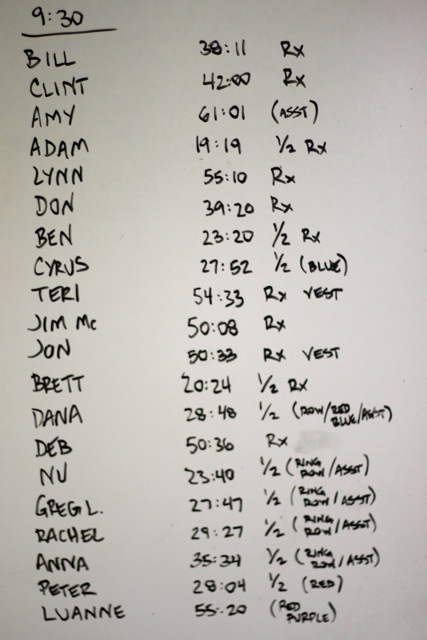 9:30
BILL 38:11 Rx
CLINT 42:00 Rx
AMY 61:01 (ASST)
ADAM 19:19 1/2 Rx
LYNN 55:10 Rx
DON 39:20 Rx
BEN 23:20 1/2 Rx
CYRUS 27:52 1/2 (BLUE)
TERI 54:33 Rx VEST
JIM Mc 50:08 Rx
JON 50:33 Rx VEST
BRETT 20:24 1/2 Rx
DANA 28:48 1/2 (ROW/RED BLUE/ASST)
DEB 50:36 Rx
NU 23:40 1/2 (RING ROW/ASST)
GREG L. 27:47 1/2 (RING ROW/ASST)
RACHEL 29:27 1/2 (RING ROW/ASST)
ANNA 35:34 1/2 (RING ROW/ASST)
PETER 28:04 1/2 (RED)
LUANNE 55:20 (RED PURPLE)